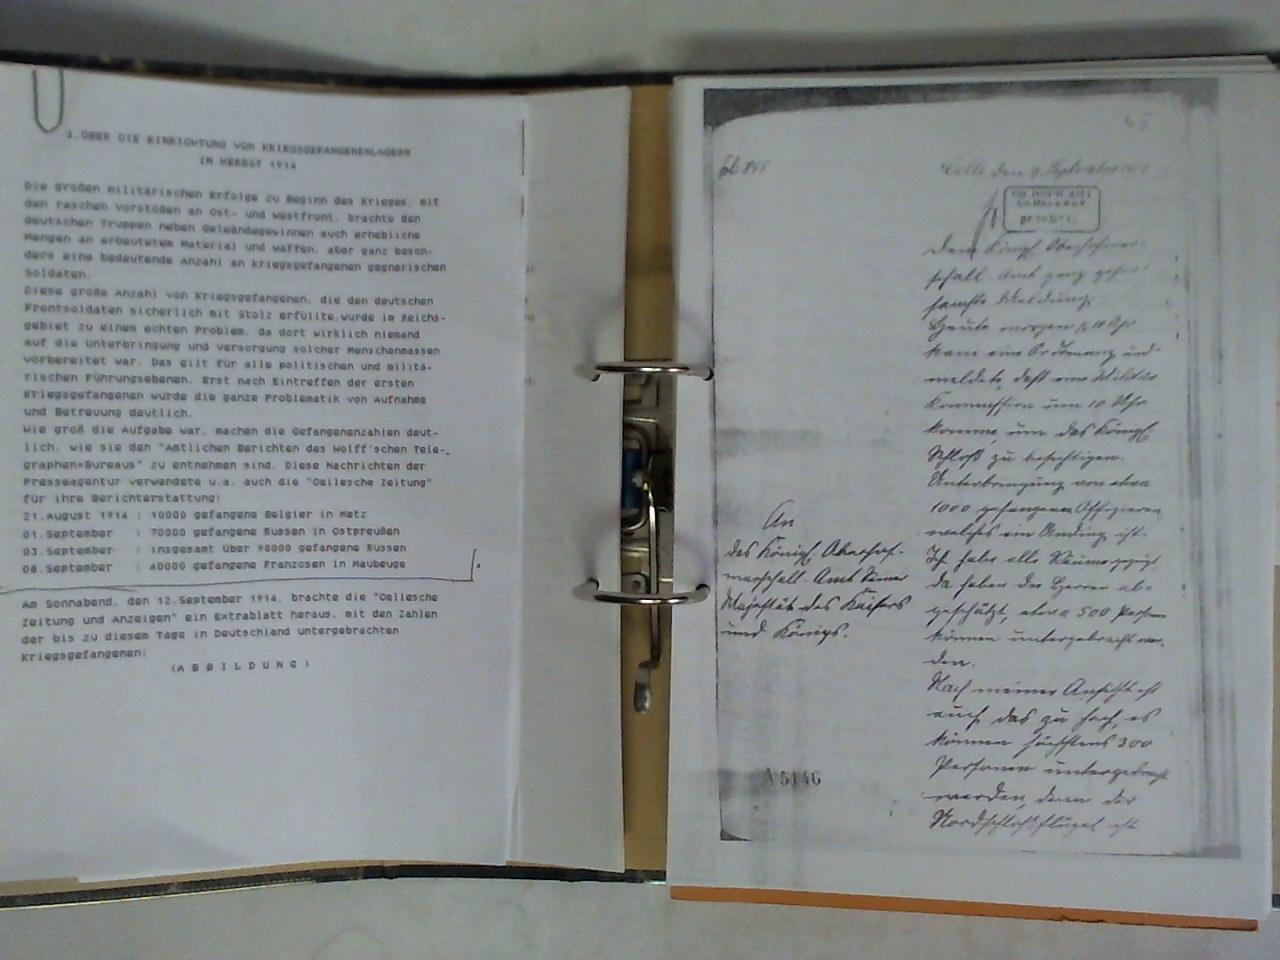 3.ÜBER DIE EINRICHTUNG VON KRIEGSGEFANGENENLAGERN
IM HERBST 1914
Die großen militärischen Erfolge zu Beginn des Krieges, mit
den raschen Vorstößen an Ost- und Westfront, brachte den
deutschen Truppen neben Geländegewinnen auch erhebliche
Mengen an erbeutetem Material und Waffen, aber ganz beson-
ders eine bedeutende Anzahl an Kriegsgefangenen gegnerischen
Soldaten.
Diese große Anzahl von Kriegsgefangenen, die den deutschen
Frontsoldaten sicherlich mit Stolz erfüllte,wurde im Reichs-
gebiet zu einem echten Problem, da dort wirklich niemand
auf die Unterbringung und Versorgung solcher Menschenmassen
vorbereitet war. Das gilt für alle politischen und militä-
rischen Führungsebenen. Erst nach Eintreffen der ersten
Kriegsgefangenen wurde die ganze Problematik von Aufnahme
und Betreuung deutlich.
Wie groß die Aufgabe war, machen die Gefangenenzahlen deut-
lich, wie sie den "Amtlichen Berichten des Wolff'schen Tele-
graphen-Bureaus" zu entnehmen sind. Diese Nachrichten der
Presseagentur verwendete u.a. auch die "Cellesche Zeitung"
für ihre Berichterstattung:
21.August 1914 : 10000 gefangene Belgier in Metz
01.September : 70000 gefangene Russen in Ostpreußen
03.September : insgesamt über 90000 gefangene Russen
08.September : 40000 gefangene Franzosen in Maubeuge
Am Sonnabend, den 12.September 1914, brachte die "Cellesche
Zeitung und Anzeigen" ein Extrablatt heraus, mit den Zahlen
der bis zu diesem Tage in Deutschland untergebrachten
Kriegsgefangenen:
(A B B I L D U N G)
Celle den 9 September
Dem Königl. Oberhofmar-
schall Amt ganz gehor-
samste Meldung.
Heute morgen Uhr
kam eine Ordonnanz und
meldete, daß eine Militär
Kommission um 10 Uhr
komme, um das Königl.
Schloß zu besichtigen.
Unterbringung von etwa
1000 gefangenen Offizieren
welches ein Unding ist.
Ich habe alle Räume gezeigt
da haben die Herren ab-
geschätzt, etwa 500 Personen
können untergebracht wer-
den.
Nach meiner Ansicht ist
auch das zu hoch, es
können höchstens 300
Personen untergebracht
werden, denn der
Nordschloßflügel ist
An
das Königl. Oberhof-
marschall-Amt Seiner
Majestät des Kaisers
und Königs.
A 5146